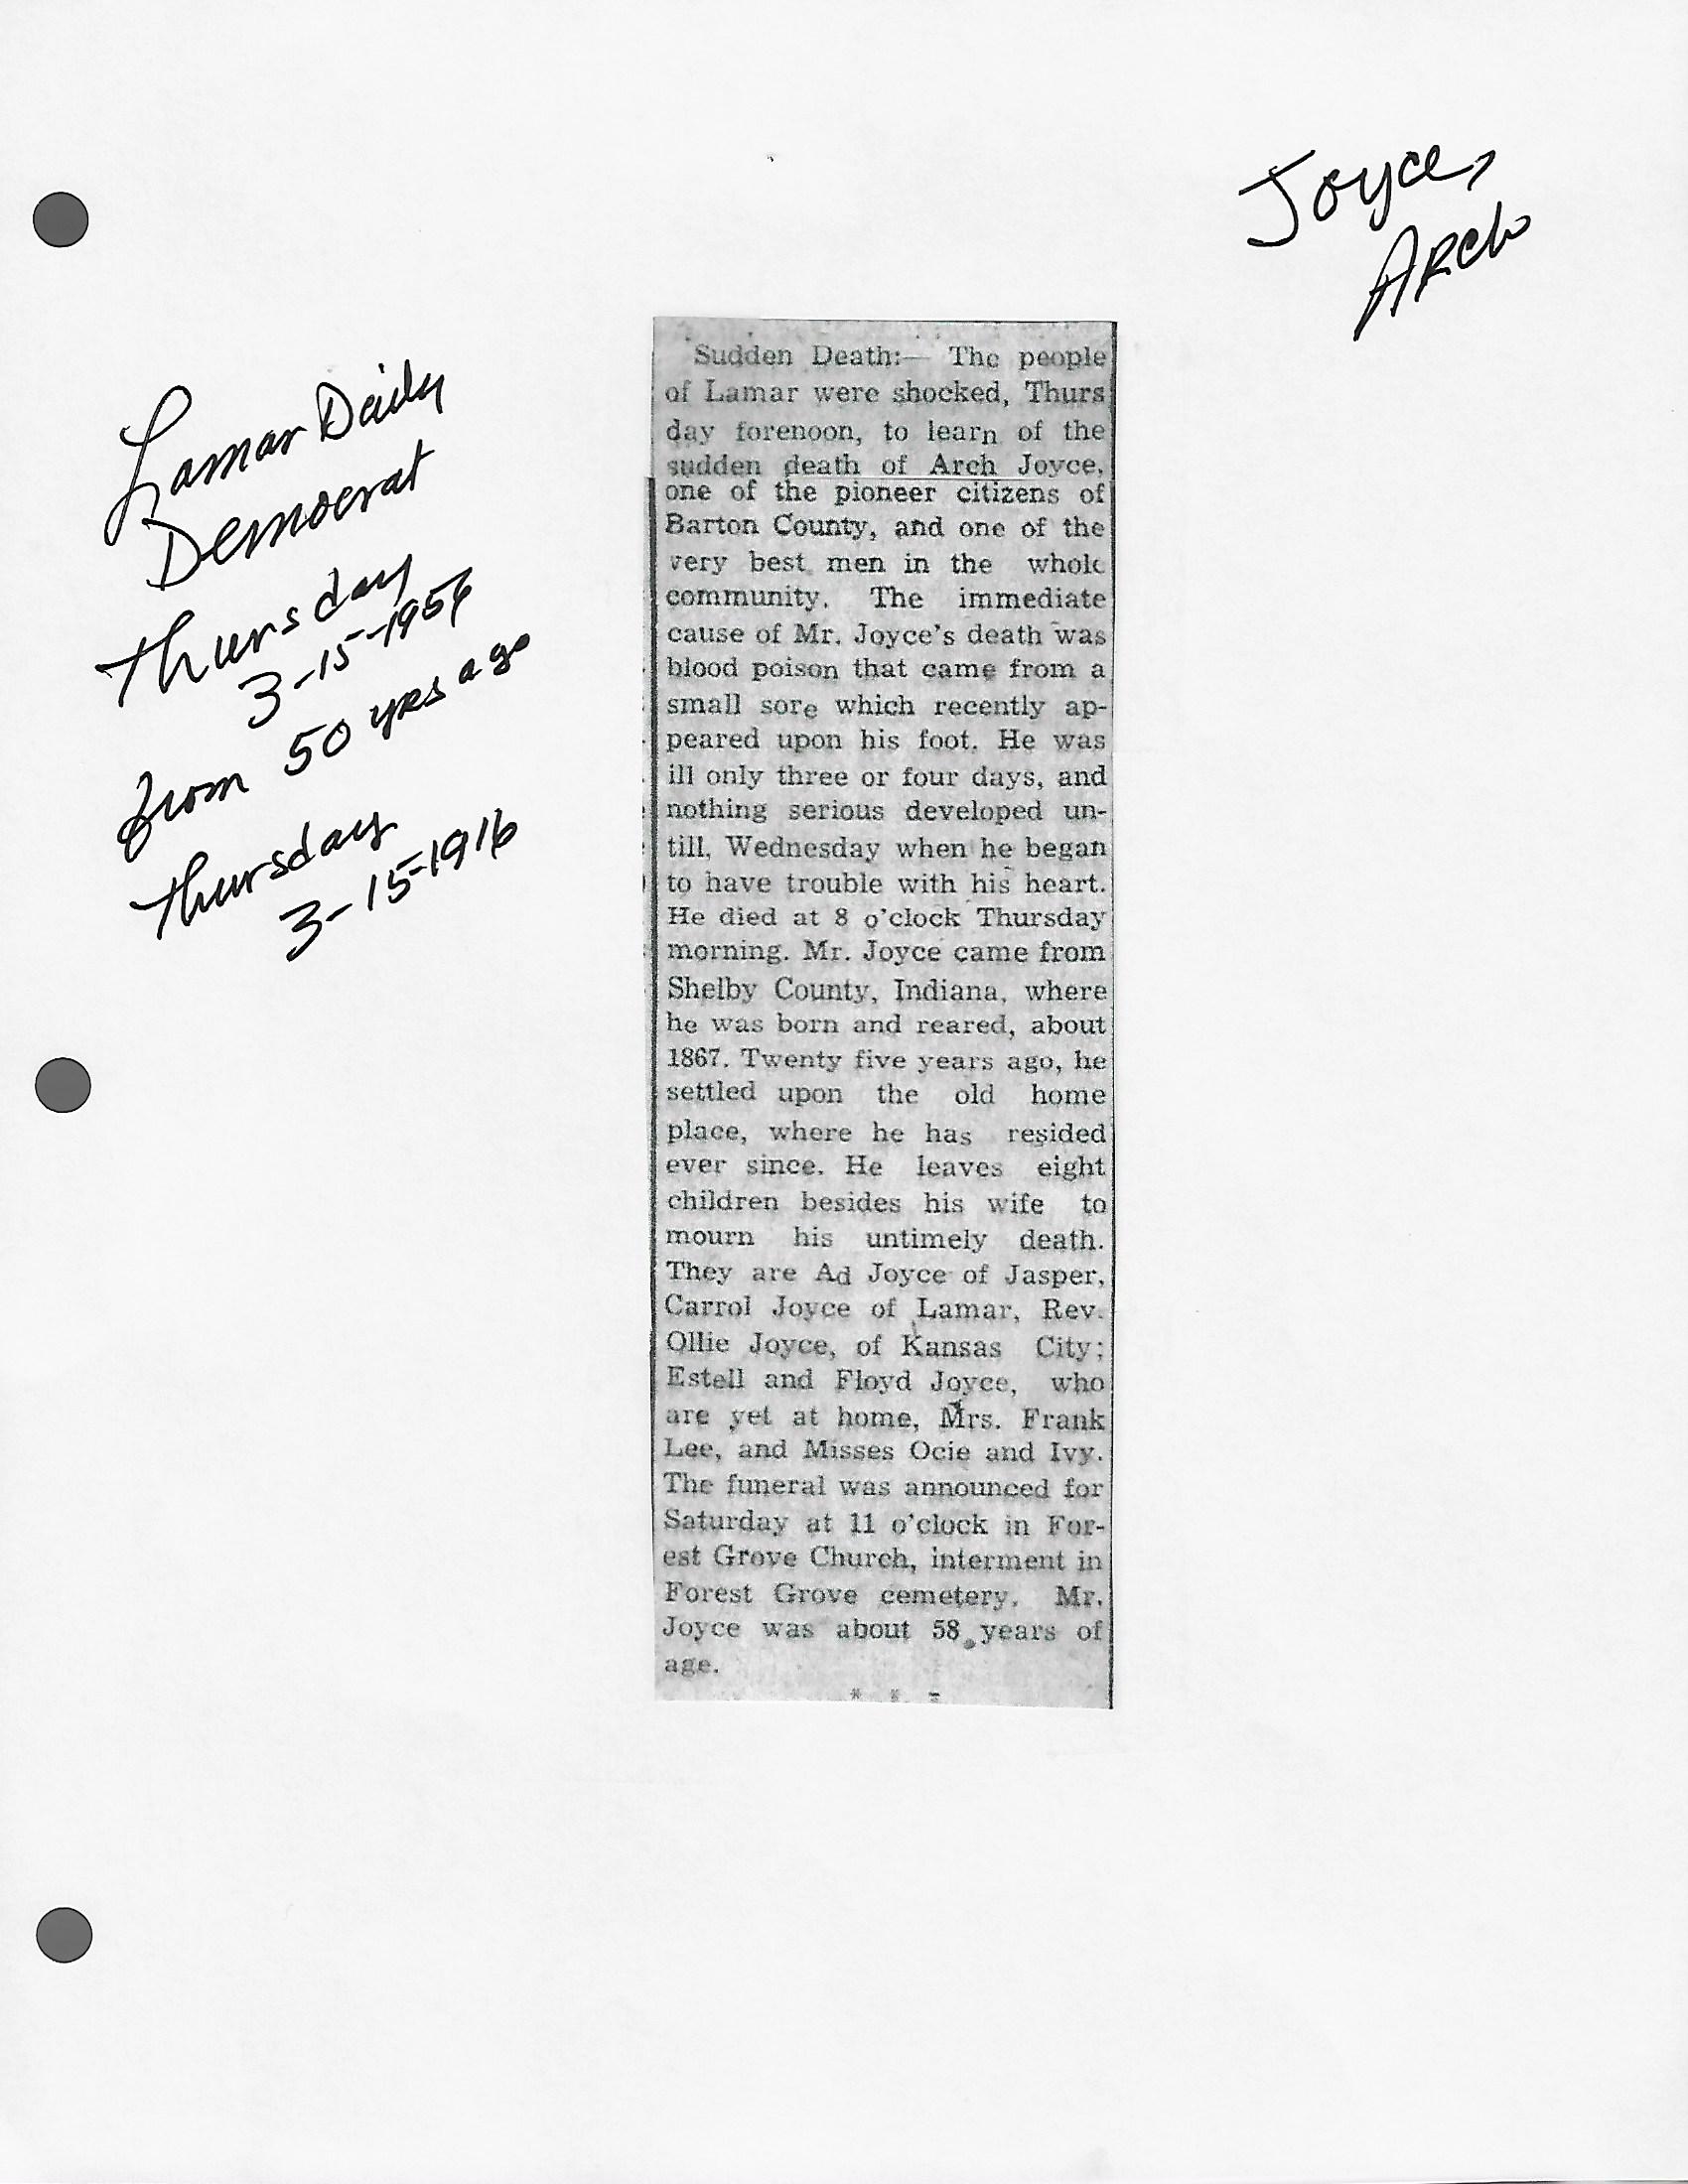 Joyce,
Arch
Lamar Daily
Democrat
Thursday
3-15-1956
from 50 yrs ago
Thursday
3-15-1916
Sudden Death:— The people
of Lamar were shocked, Thurs
day forenoon, to learn of the
sudden death of Arch Joyce,
one of the pioneer citizens of
Barton County, and one of the
very best men in the whole
community. The immediate
cause of Mr. Joyce's death was
blood poison that came from a
small sore which recently ap-
peared upon his foot. He was
ill only three or four days, and
nothing serious developed un-
till, Wednesday when he began
to have trouble with his heart.
He died at 8 o'clock Thursday
morning. Mr. Joyce came from
Shelby County, Indiana, where
he was born and reared, about
1867. Twenty five years ago, he
settled upon the old home
place, where he has resided
ever since. He leaves eight
children besides his wife to
mourn his untimely death.
They are Ad Joyce of Jasper,
Carrol Joyce of Lamar, Rev.
Ollie Joyce, of Kansas City;
Estell and Floyd Joyce, who
are yet at home, Mrs. Frank
Lee, and Misses Ocie and Ivy.
The funeral was announced for
Saturday at 11 o'clock in For-
est Grove Church, interment in
Forest Grove cemetery. Mr.
Joyce was about 58 years of
age.